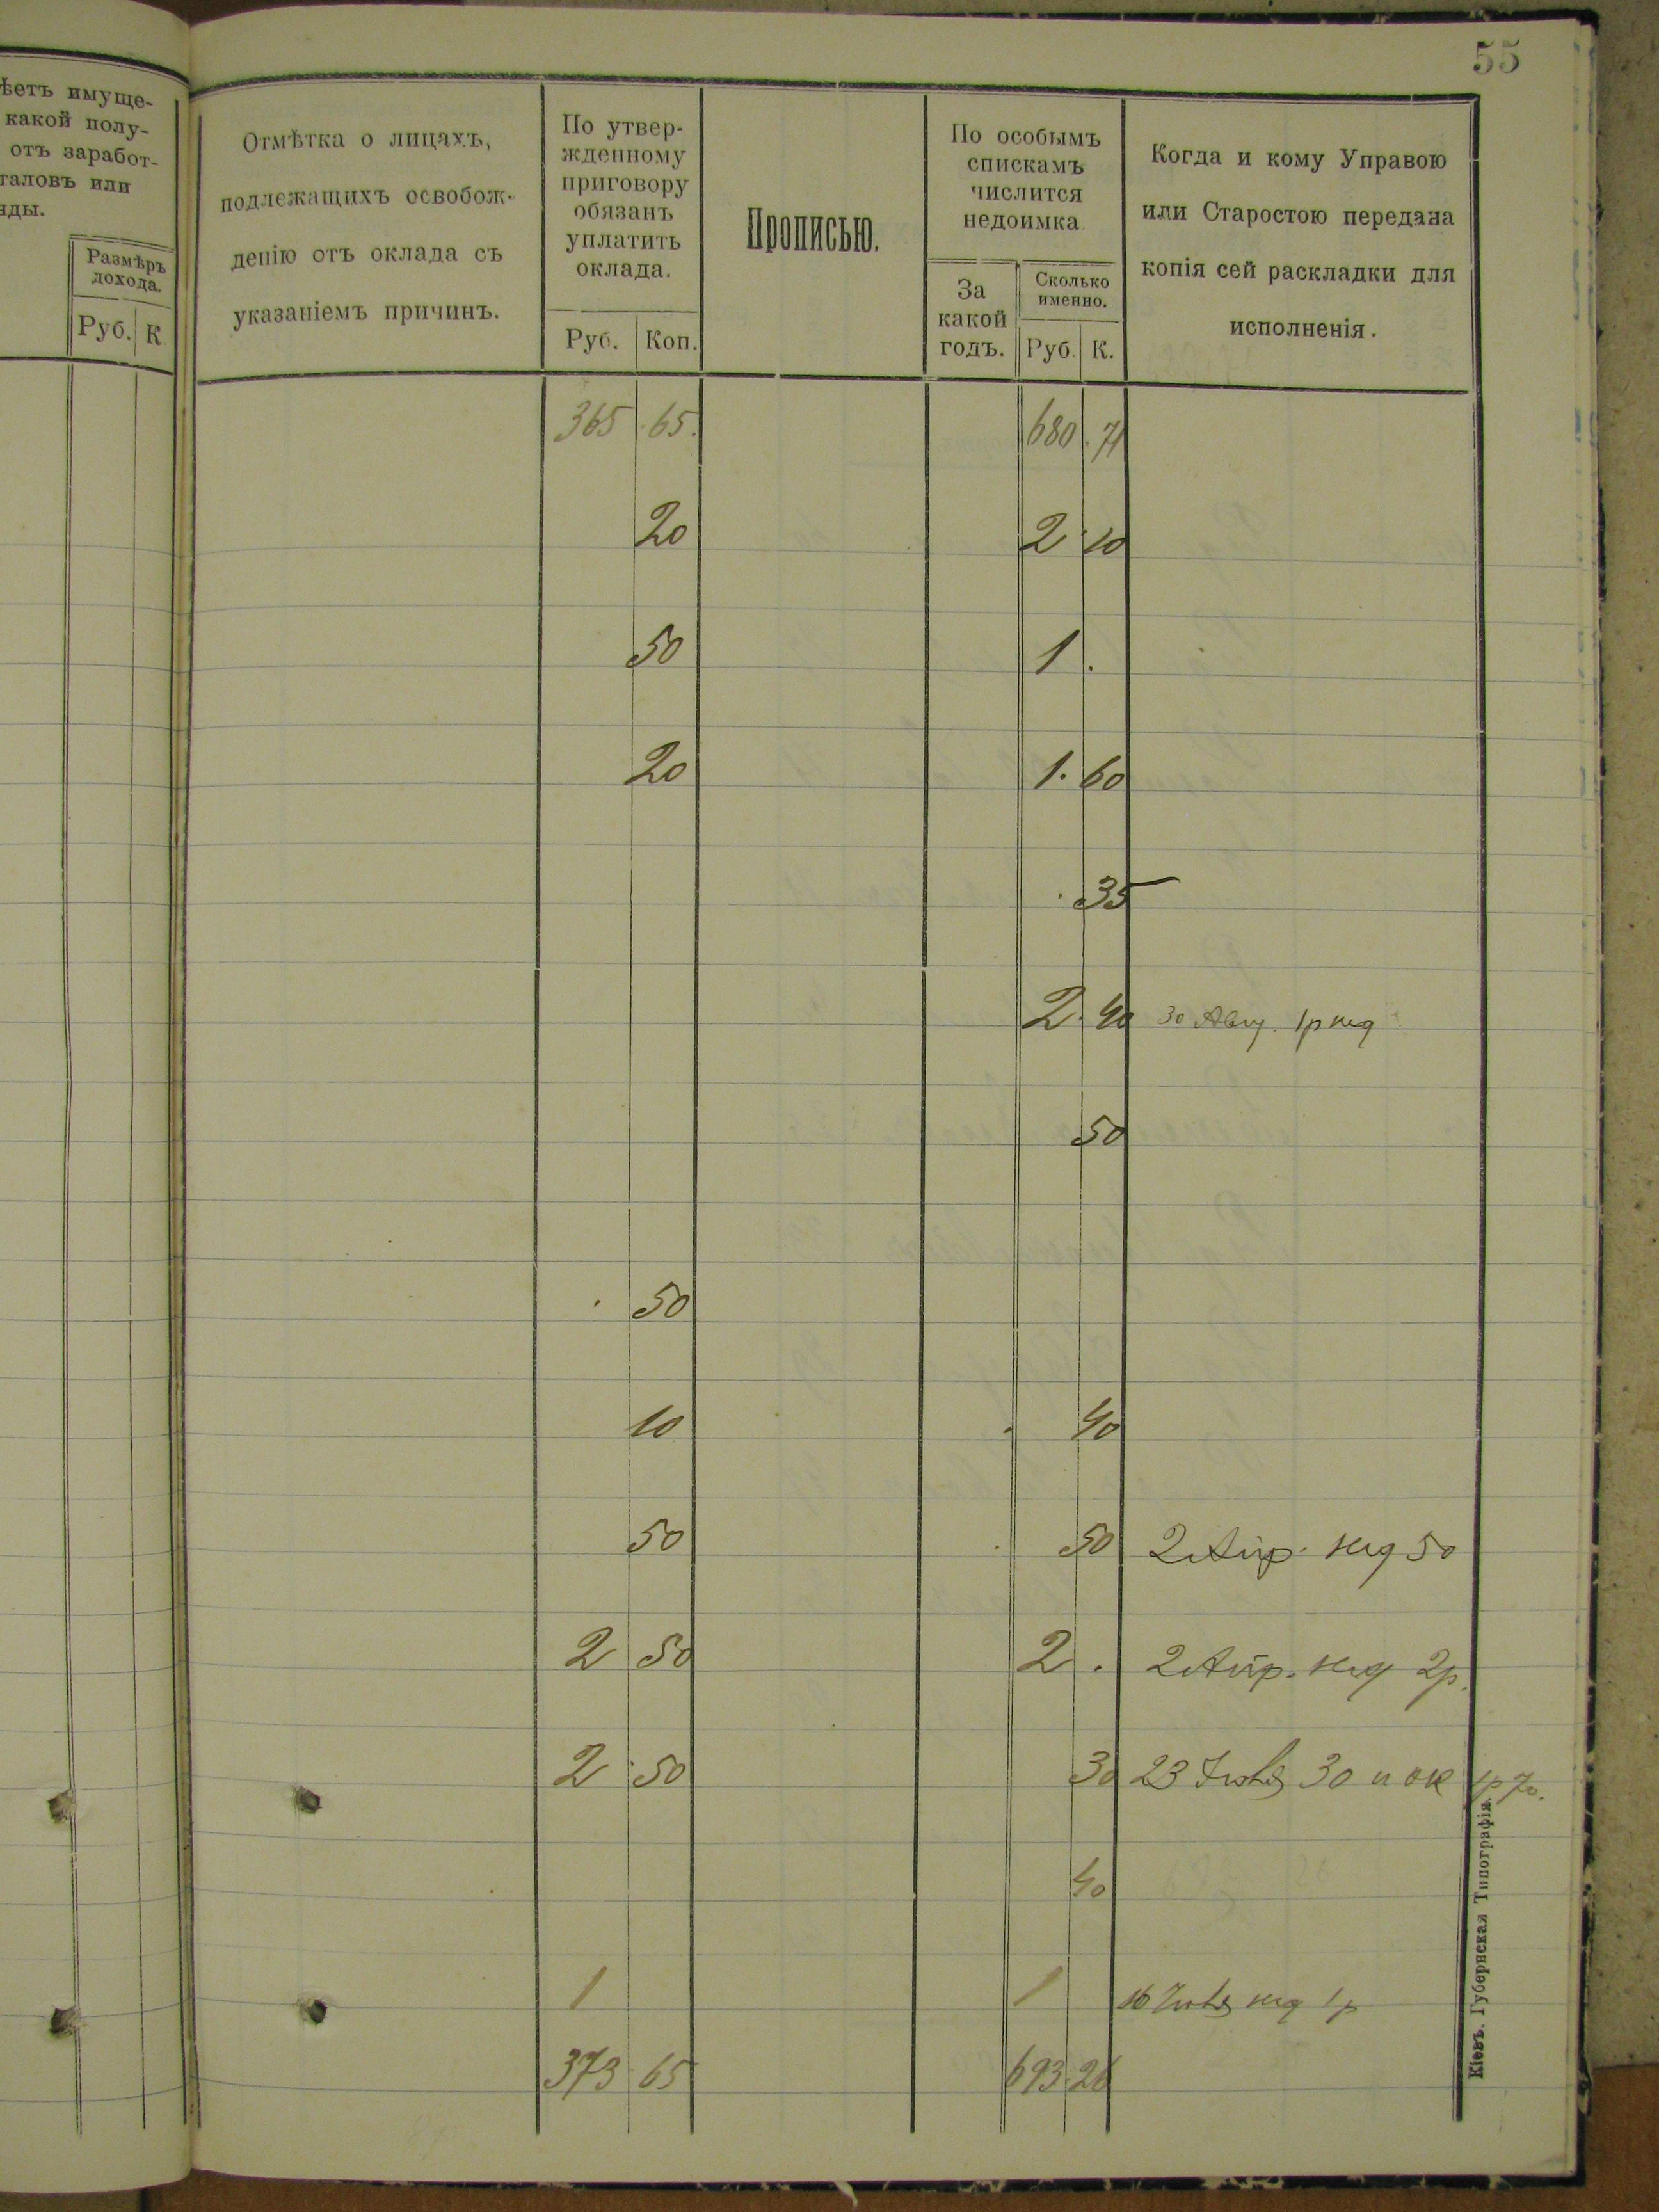 55
ѣетъ имуще-
какой полу-
отъ заработ-
таловъ или
нды.
Размѣръ
дохода.
Руб. К
Отмѣтка о лицахъ,
подлежащихъ освобож-
денію отъ оклада съ
указаніемъ причинъ.
По утвер-
жденному
приговору
обязанъ
уплатить
оклада.
Руб. Коп.
Прописью.
По особымъ
спискамъ
числится
недоимка.
За
какой
годъ.
Сколько
именно.
Руб. К.
Когда и кому Управою
или Старостою передана
копія сей раскладки для
исполненія.
365 65. 680 71
20 2 10
50 1 .
20 1. 60
. 35
2. 40 30 Авг. 1р нед
50
. 50
10 . 40
50 . 50 2 Апр. нед 50
2 50 2 . 2 Апр. нед 2р.
2 50 30 23 Іюня 30 и ок 1р 70.
40
1 1 16 нед 1р
373 65 693 26
Кіевъ. Губернская Типографія.